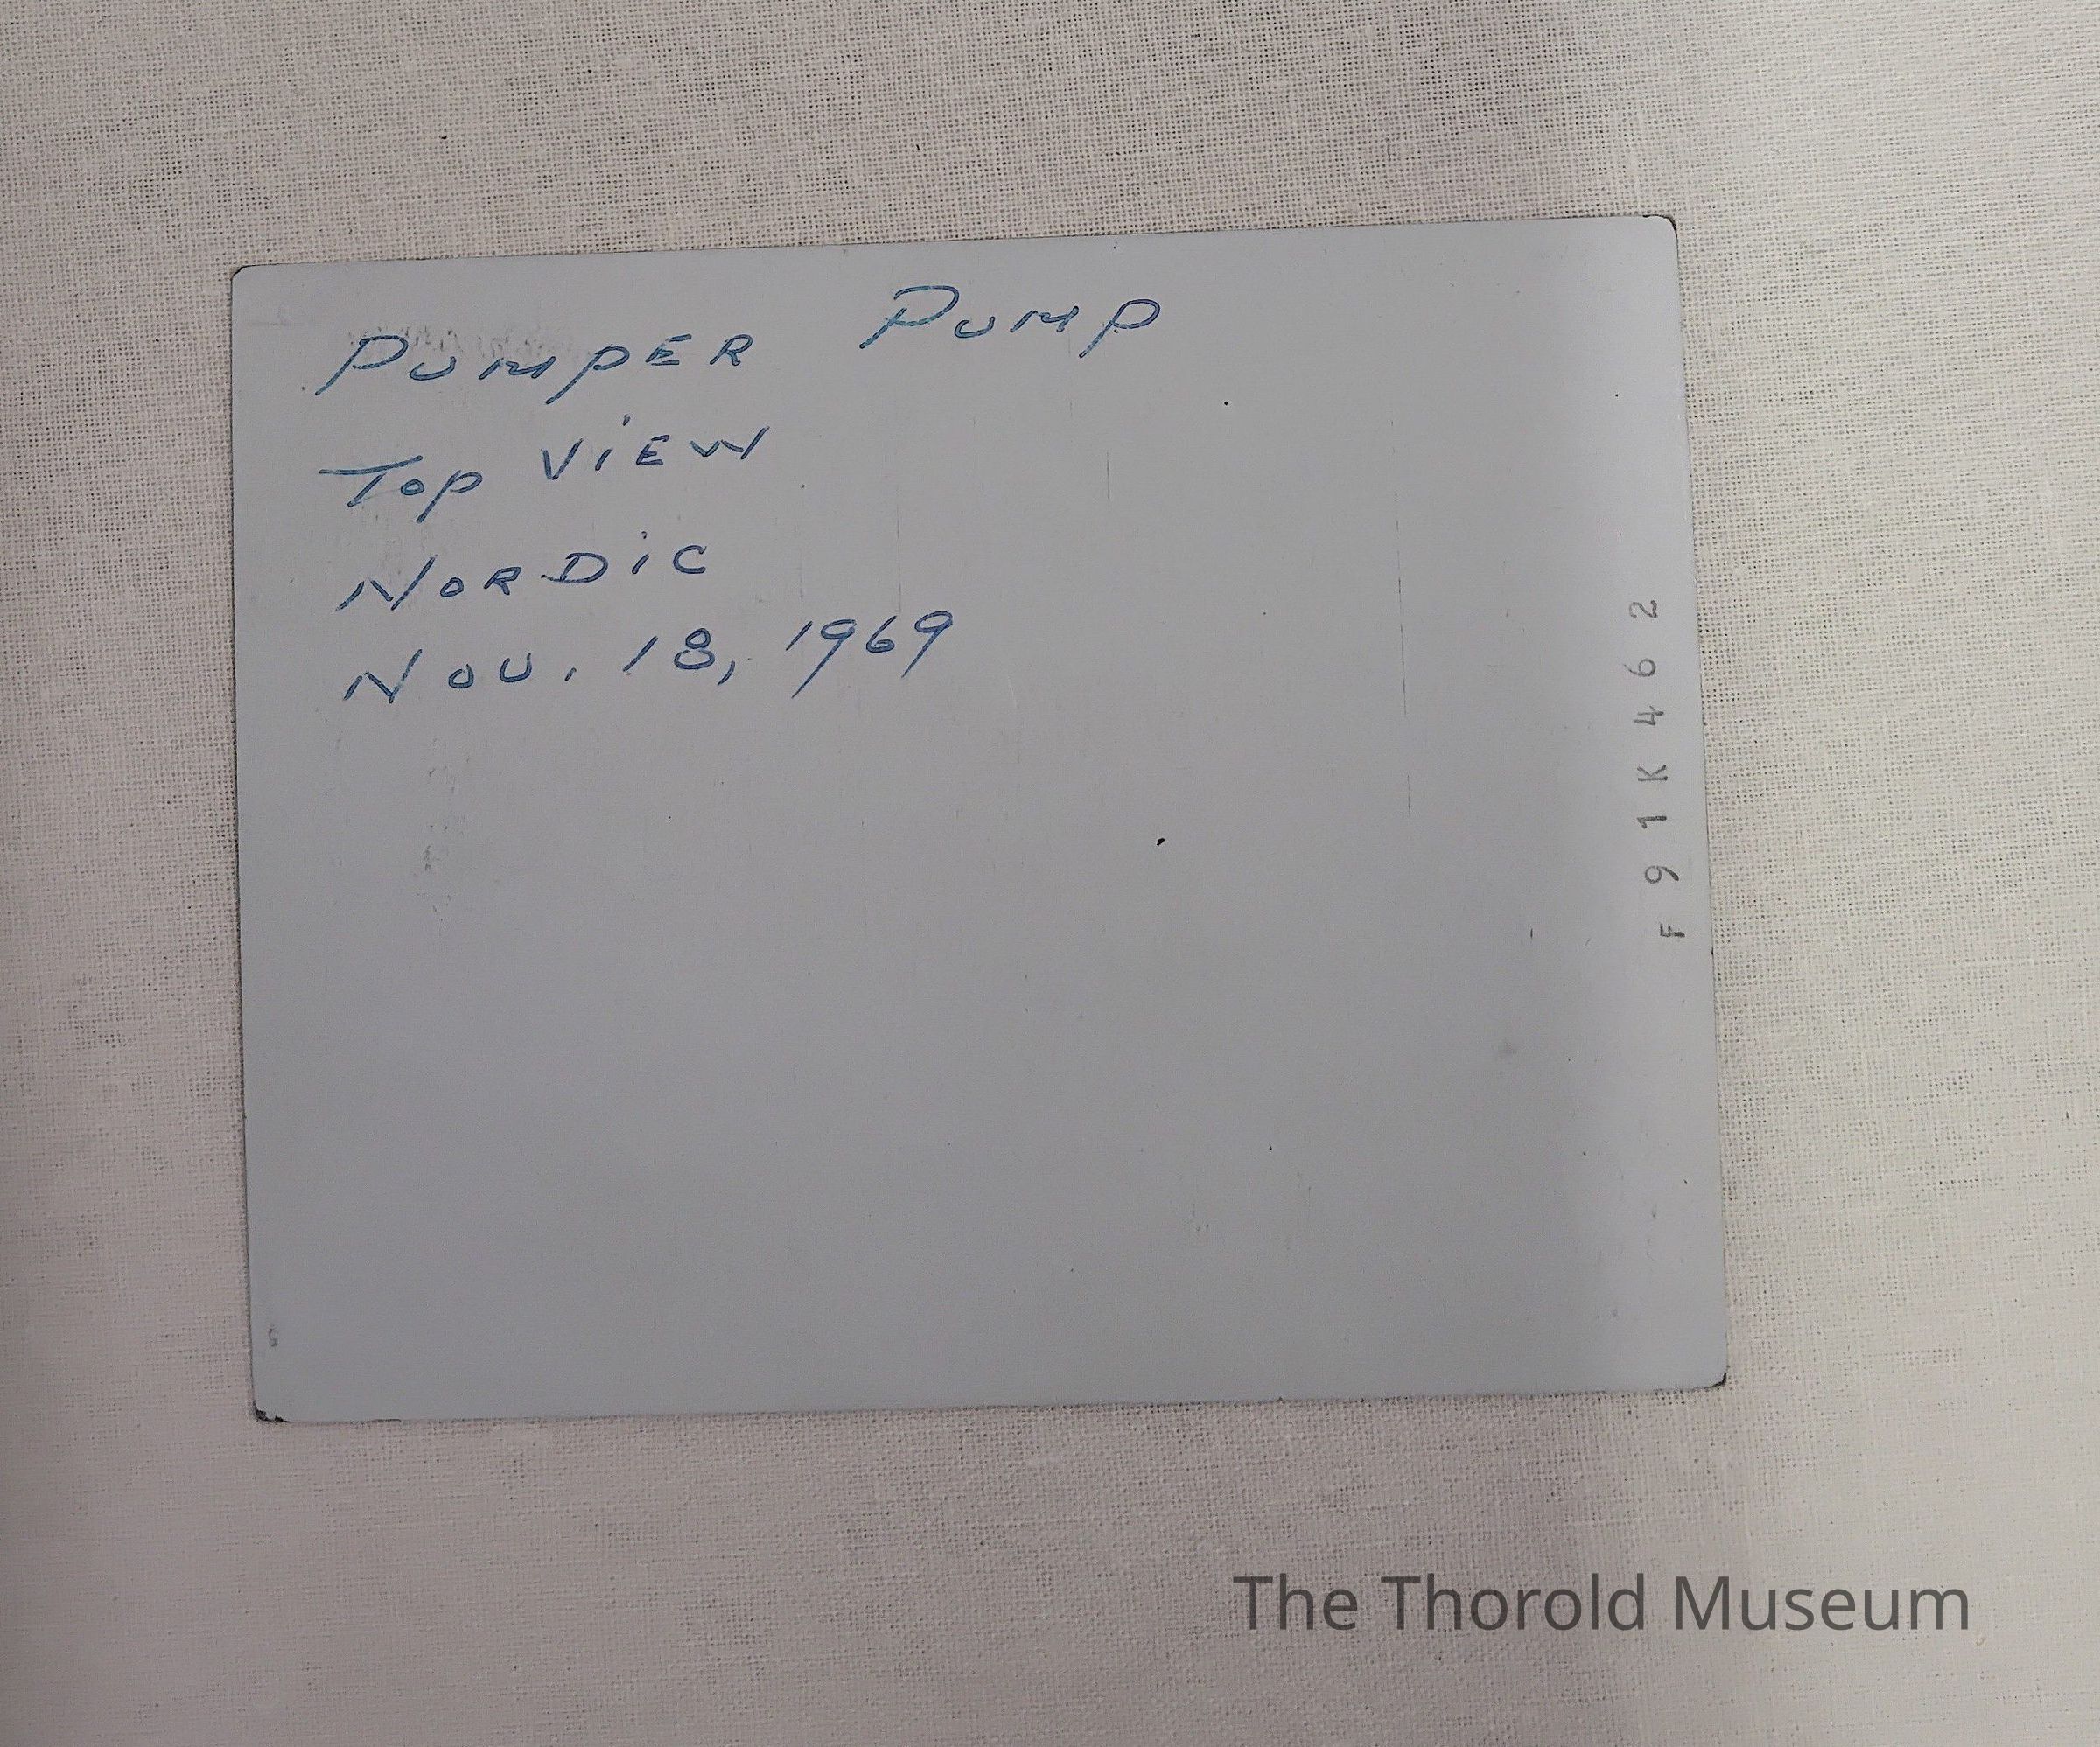 PUMPER PUMP
TOP ViEW
NORDiC
NOV. 18, 1969
F91K462
The Thorold Museum